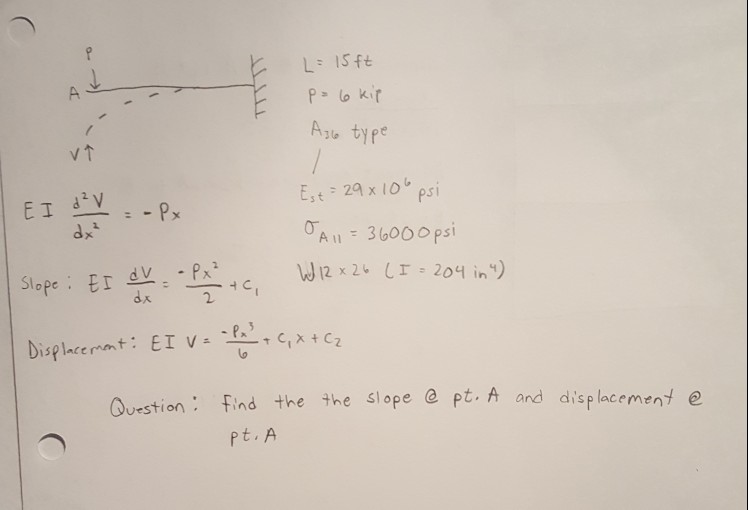 P
A
V↑
L = 15 ft
P = 6 kip
A36 type
Est = 29 x 10⁶ psi
σAll = 36000 psi
W12 x 26 (I = 204 in⁴)
EI d²V/dx² = -Px
Slope: EI dV/dx = -Px²/2 + C₁
Displacement: EI V = -Px³/6 + C₁x + C₂
Question: find the the slope @ pt. A and displacement @
pt. A